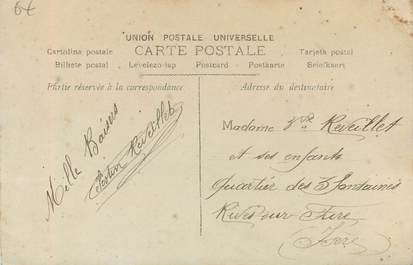 6€
UNION POSTALE UNIVERSELLE
CARTE POSTALE
Cartolina postale
Tarjeta postal
Bilhete postal
Levelezo-lap
Postcard
Postkarte
Briefkaart
Partie réservée à la correspondance
Adresse du destinataire
Mille Baisers
Célestin Reveillet
Madame Vve Reveillet
et ses enfants
quartier des 3 Fontaines
Rives sur Fure
(Isère)